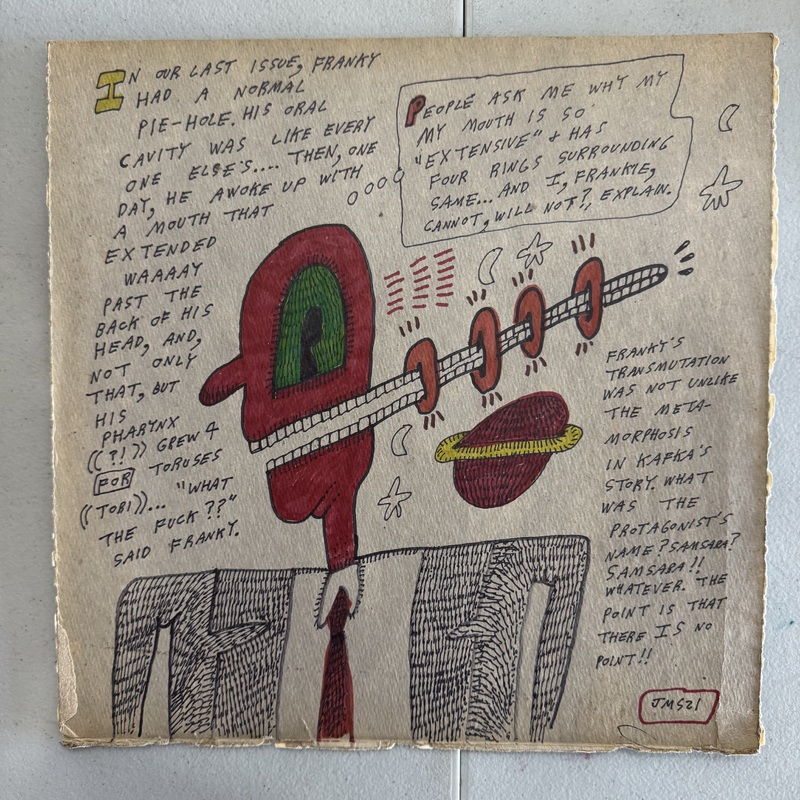 IN OUR LAST ISSUE, FRANKY
HAD A NORMAL
PIE-HOLE. HIS ORAL
CAVITY WAS LIKE EVERY
ONE ELSE'S.... THEN, ONE
DAY, HE AWOKE UP WITH
A MOUTH THAT
EXTENDED
WAAAAY
PAST THE
BACK OF HIS
HEAD, AND,
NOT ONLY
THAT, BUT
HIS
PHARYNX
((?!)) GREW 4
FOR TORUSES
((TORI))... "WHAT
THE FUCK??"
SAID FRANKY.
PEOPLE ASK ME WHY MY
MY MOUTH IS SO
"EXTENSIVE" & HAS
FOUR RINGS SURROUNDING
SAME... AND I, FRANKIE,
CANNOT, WILL NOT?, EXPLAIN.
FRANKY'S
TRANSMUTATION
WAS NOT UNLIKE
THE META-
MORPHOSIS
IN KAFKA'S
STORY. WHAT
WAS THE
PROTAGONIST'S
NAME? SAMSARA?
SAMSARA!!
WHATEVER. THE
POINT IS THAT
THERE IS NO
POINT!!
JMS21